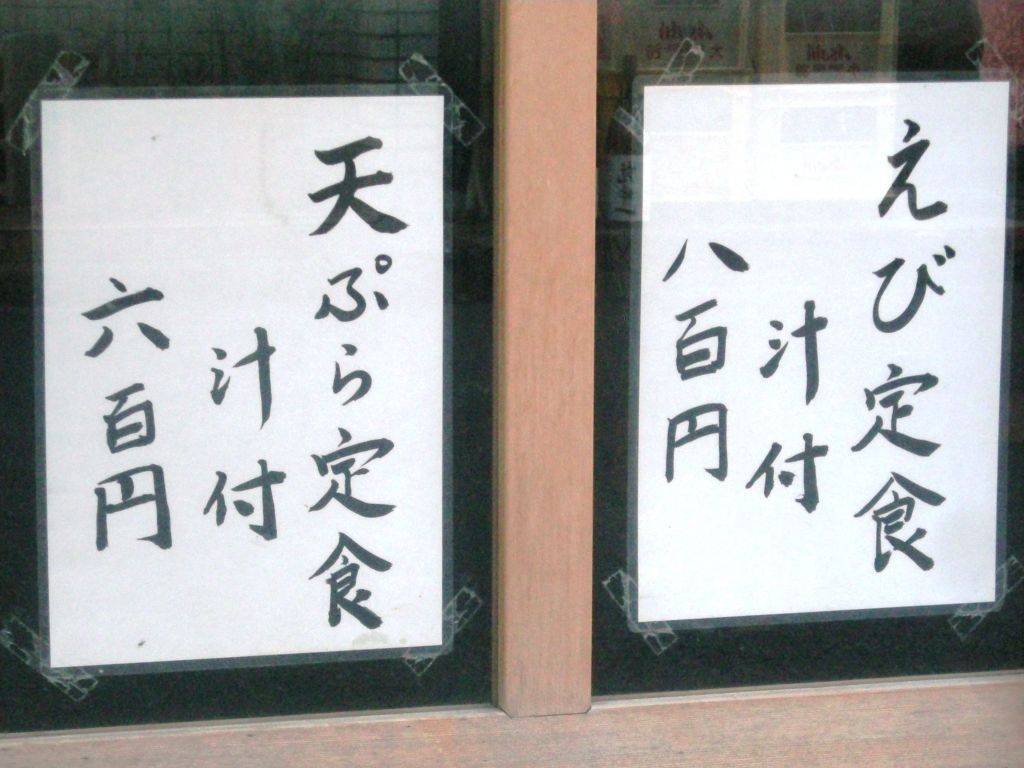 えび定食
汁付
八百円
天ぷら定食
汁付
六百円